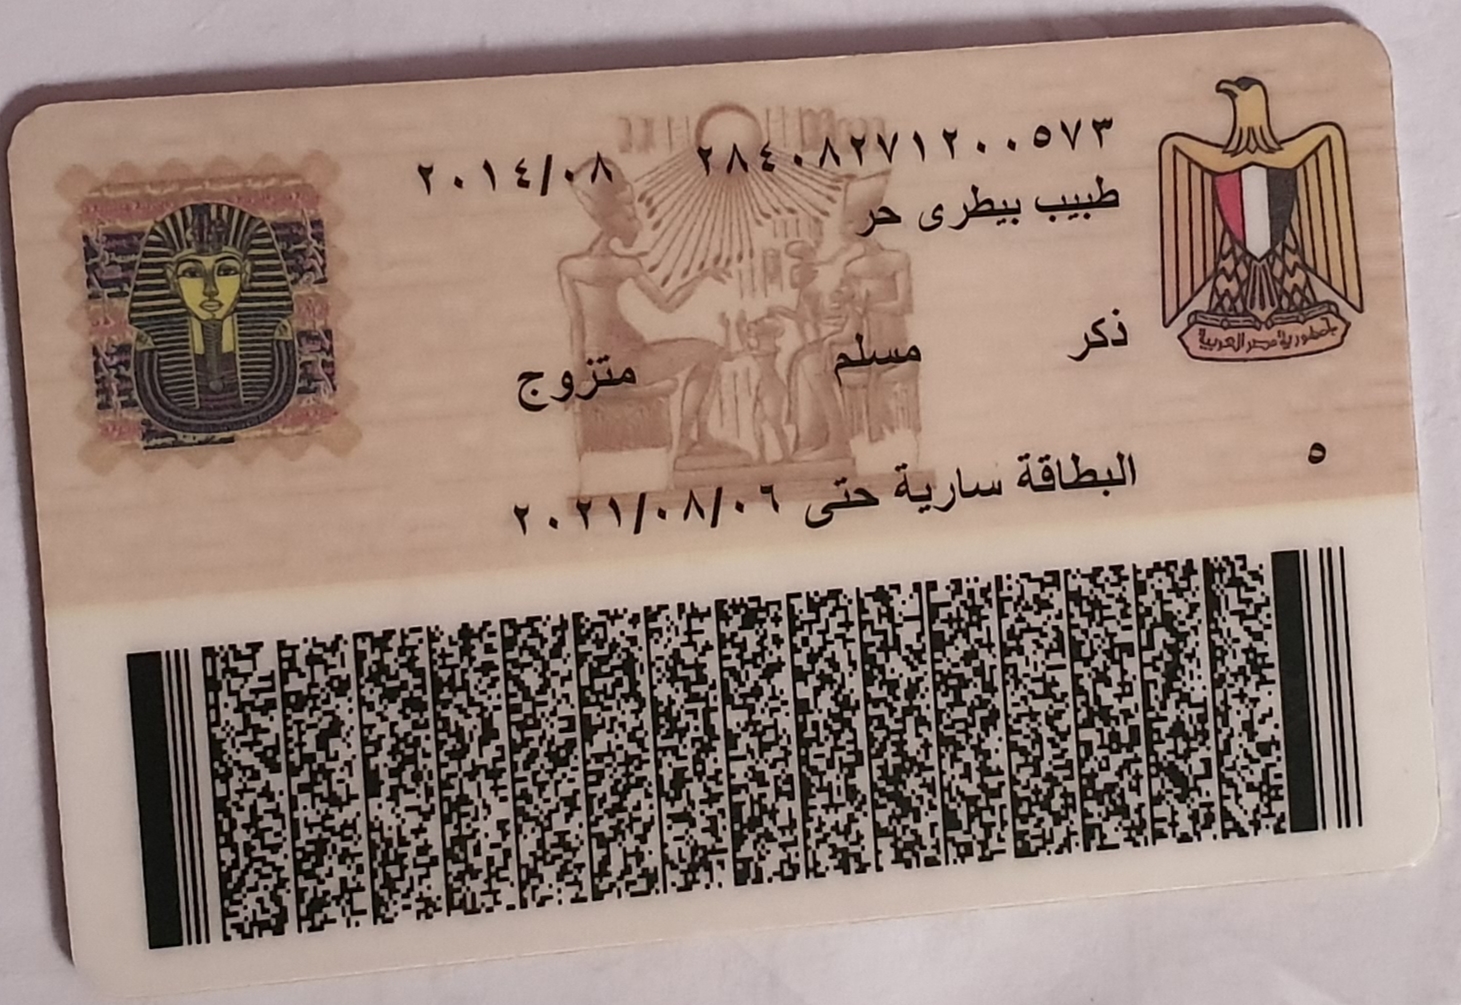 ٢٨٤٠٨٢٧١٢٠٠٥٧٣ ٢٠١٤/٠٨
طبيب بيطرى حر
ذكر مسلم متزوج
٥
البطاقة سارية حتى ٢٠٢١/٠٨/٠٦
جمهورية مصر العربية